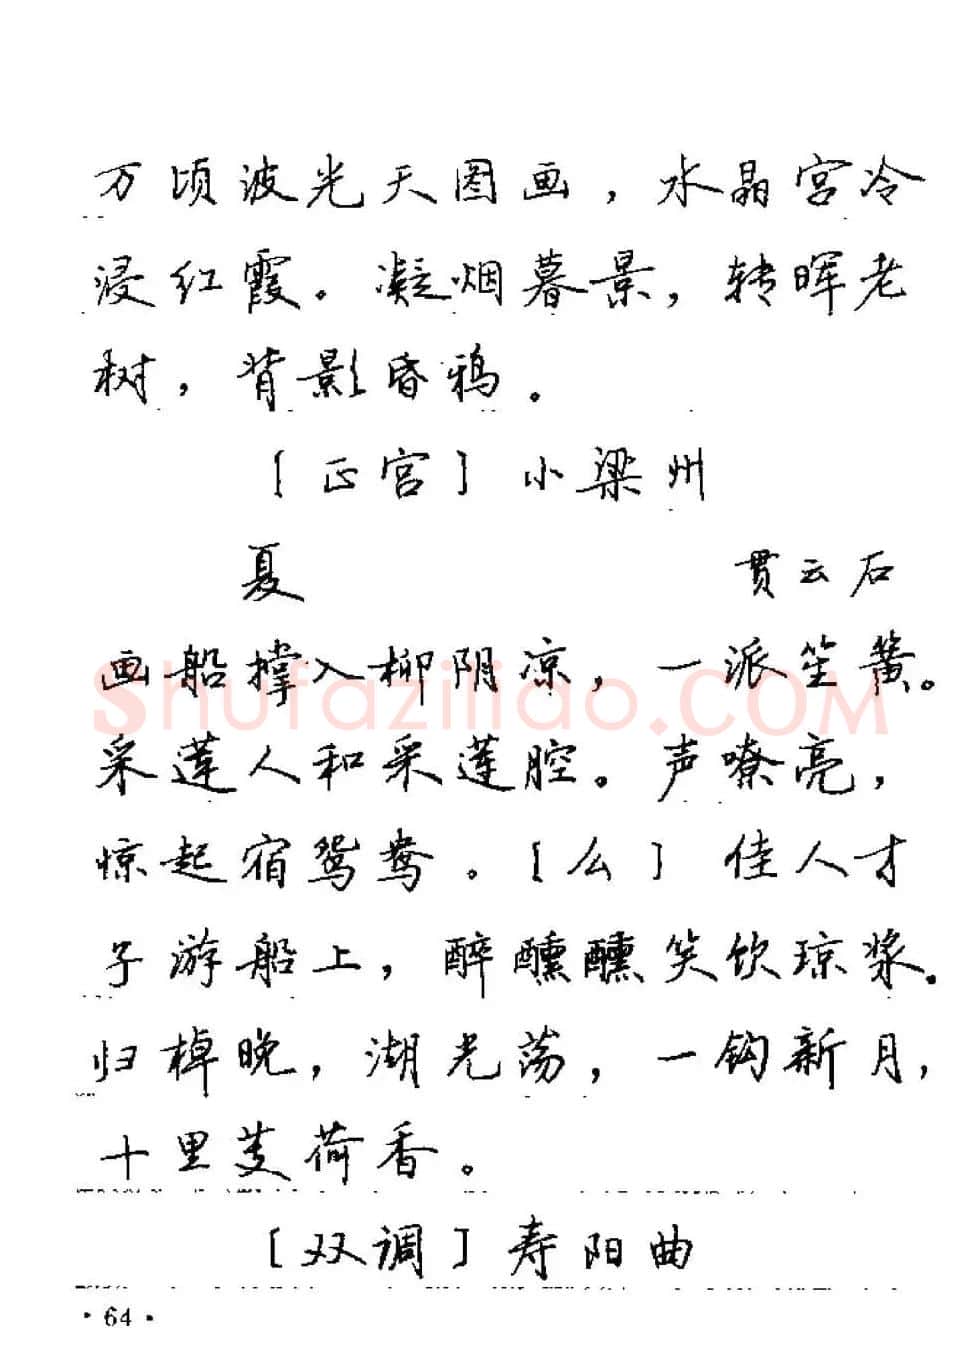 万顷波光天图画，水晶宫冷
浸红霞。凝烟暮景，转晖老
树，背影昏鸦。
［正宫］小梁州
夏 贯云石
画船撑入柳阴凉，一派笙簧。
采莲人和采莲腔。声嘹亮，
惊起宿鸳鸯。［么］佳人才
子游船上，醉醺醺笑饮琼浆。
归棹晚，湖光荡，一钩新月，
十里芰荷香。
［双调］寿阳曲
·64·
Shufaziliao.COM